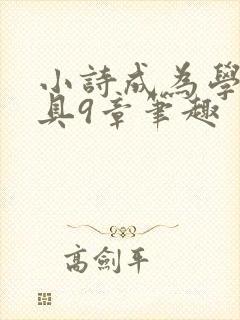 小詩成為學
具9章筆趣
高劍平